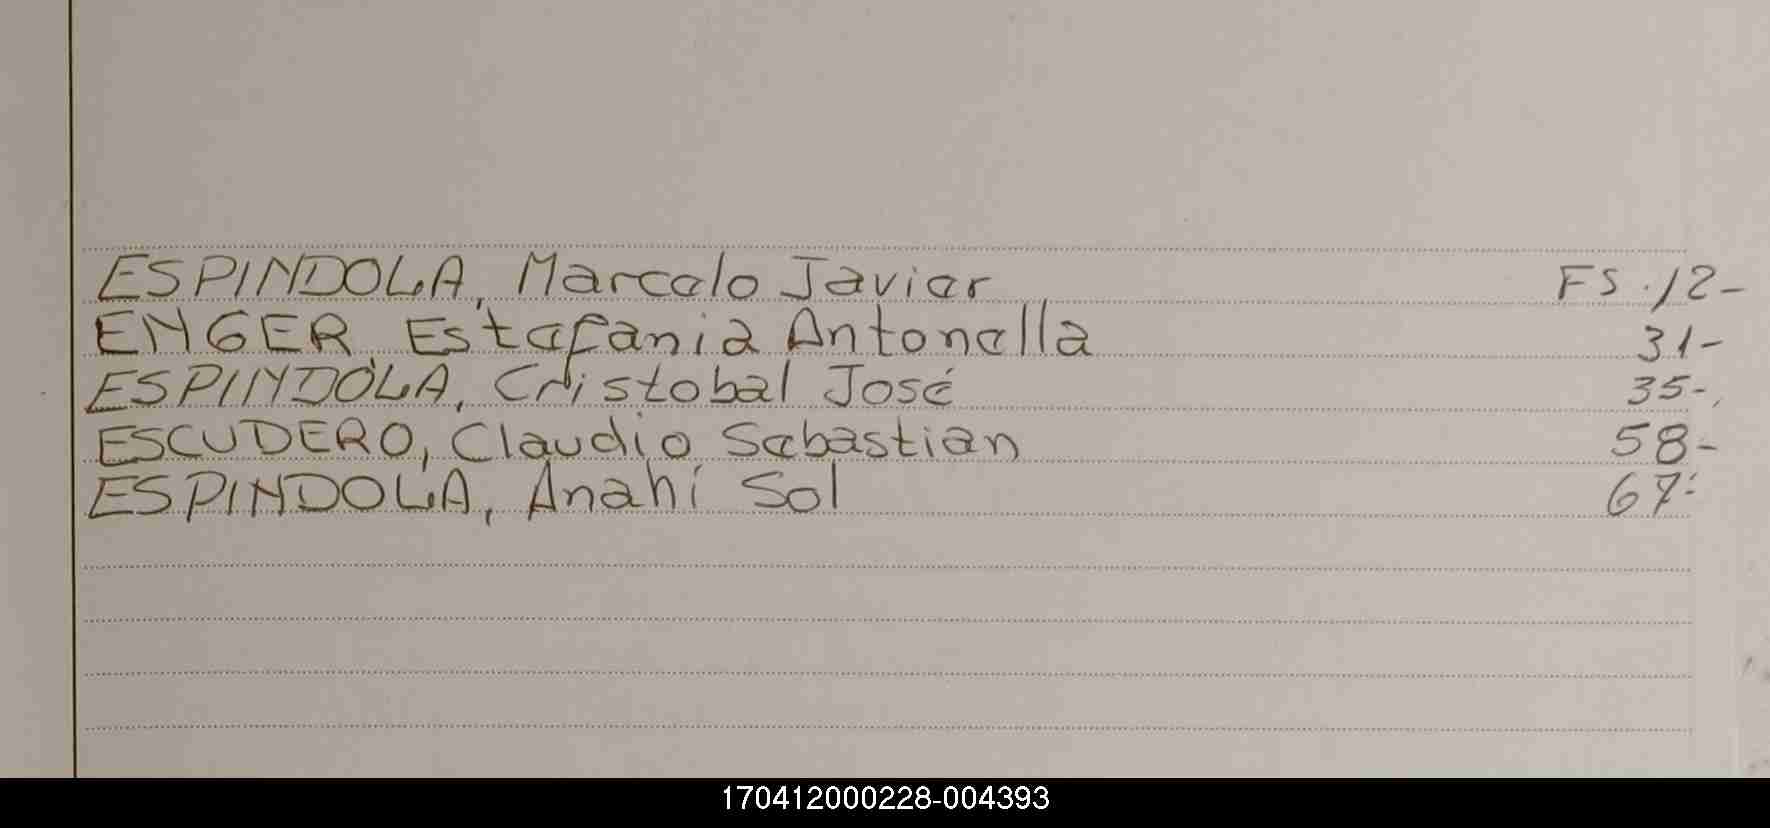 ESPINDOLA, Marcelo Javier FS. 12-
ENGER, Estefania Antonella 31-
ESPINDOLA, Cristobal José 35-
ESCUDERO, Claudio Sebastian 58-
ESPINDOLA, Anahí Sol 67-
170412000228-004393